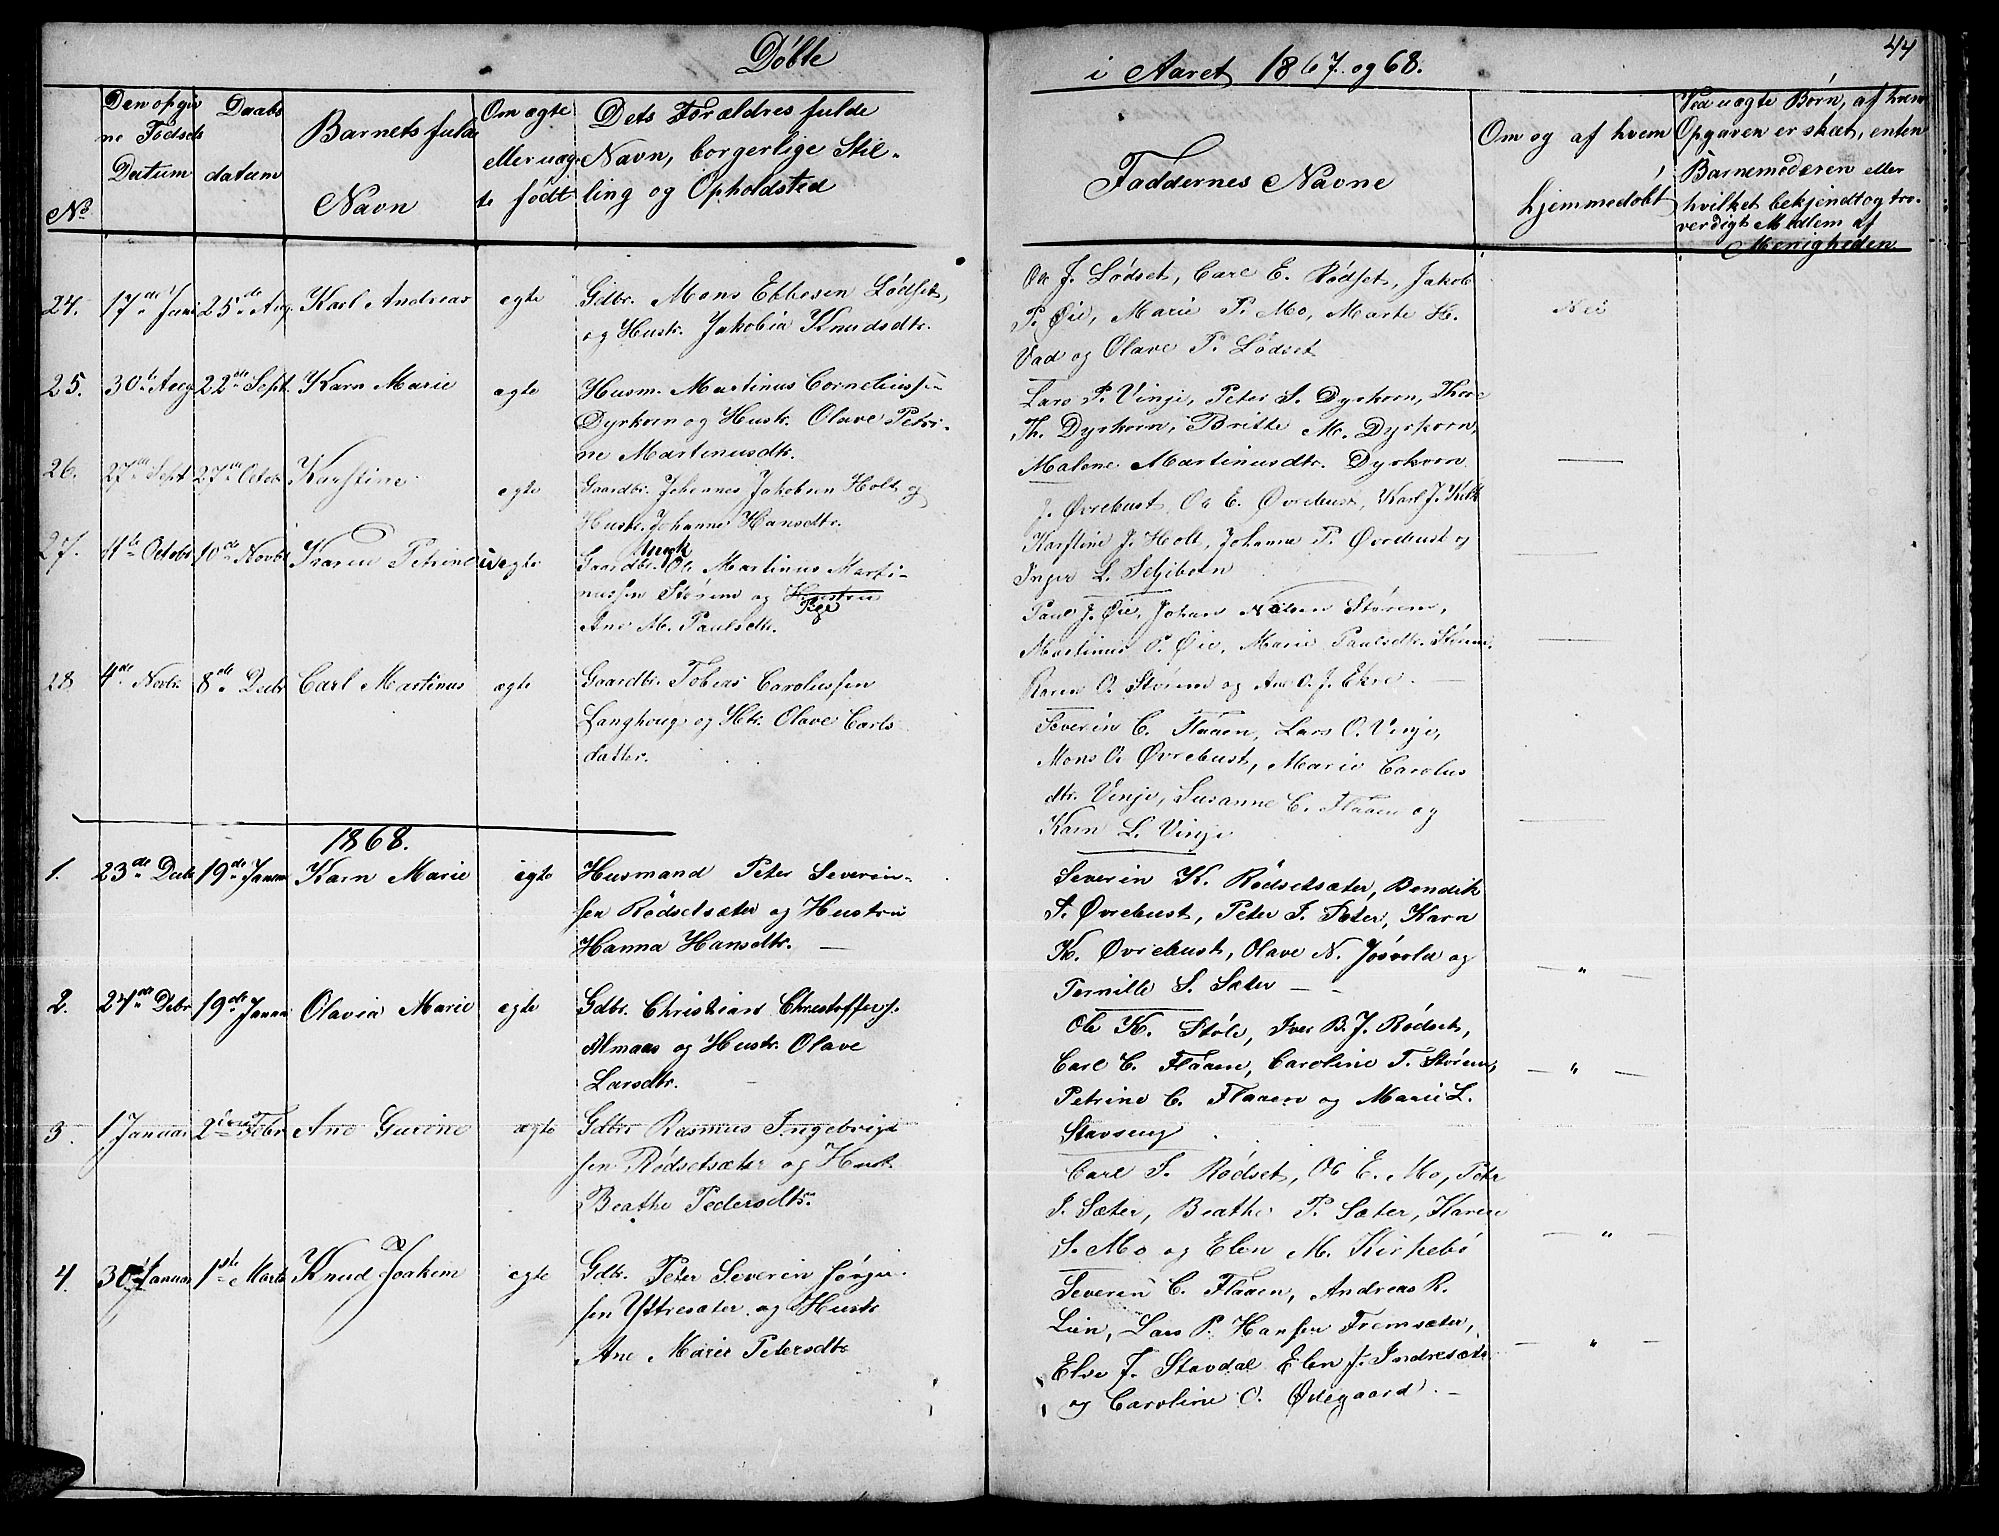 Døbte
i Aaret 1867 og 68.
44
No
Den opgiv
ne Fødsels
Datum
Daabs
datum
Barnets fulde
Navn
Om ægte
eller uæg
te født
Dets Forældres fulde
Navn, borgerlige Stil-
ling og Opholdsted
Faddernes Navne
Om og af hvem
hjemmedøbt
Ved uægte Børn, af hvem
Opgaven er skeet, enten
Barnemoderen eller
hvilket bekjendt og tro-
værdigt Medlem af
Menigheden
24. 17de Juni 25de Aug. Karl Andreas egte
Gdbr. Mons Ebbesen Lødset,
og Hustr. Jakobia Knudsdtr.
Ole J. Lødset, Carl E. Rødset, Jakob
P. Øie, Marie P. Mo, Marte H.
Vad og Olave P. Lødset
Nei
25. 30te Aug 22de Sept. Karn Marie egte
Husm. Martinus Corneliussen
Dyrkorn og Hustr. Olave Petri-
ne Martinusdtr.
Lars P. Vinje, Peter S. Dyrkorn, Thore
Th. Dyrkorn, Britte M. Dyrkorn,
Malene Martinusdtr. Dyrkorn
26. 27de Sept 27de Octobr Karstine egte
Gaardbr. Johannes Jakobsen Holt og
Hustr. Johanne Hansdtr.
J. Øvrebust, Ole E. Øvrebust, Karl J. Holt
Karstine J. Holt, Johanne P. Øvrebust og
Inger L. Seljebotn
27. 11te Octobr 10de Novbr Karen Petrine uegte
Gaardbr. Ungk Ole Martinus Marti-
nussen Størene og Hustru
Pge
Ane M. Paulsdtr.
Paul J. Øie, Johan Nilsen Størene,
Martinus O. Øie, Marie Paulsdtr. Størene,
Karen O. Størene og Ane O. J. Ekre
28 4de Novbr. 8de Decbr Carl Martinus ægte
Gaardbr. Tobias Carolussen
Langhoug og Htr. Olave Carls
datter.
Severin C. Flaaen, Lars O. Vinje,
Mons O. Øvrebust, Marie Carolus
dtr. Vinje, Susanne C. Flaaen og
Karn L. Vinje
1868.
1. 23de Decbr 19de Januar Karn Marie egte
Husmand Peter Severin-
sen Rødsetsæter og Hustru
Hanna Hansdtr. —
Severin K. Rødsetsæter, Bendik
S. Øvrebust, Peter I. Sæter, Karn
K. Øvrebust, Olave N. Jøsvold og
Pernille S. Sæter — -
— " —
2. 24de Debr 19de Januar Olavia Marie egte
Gdbr. Christian Christoffers.
Almaas og Hustr. Olave
Larsdtr.
Ole K. Støle, Iver B. J. Rødset,
Carl C. Flaaen, Caroline T. Størene,
Petrine C. Flaaen og Marie L.
Stavseng
— " —
3. 1 Januar 2den Febr Ane Gurine ægte
Gdbr Rasmus Ingebrigt
sen Rødsetsæter og Hustr.
Beathe Pedersdtr.
Carl S. Rødset, Ole E. Mo, Peter
I. Sæter, Beathe P. Sæter, Karen
S. Mo og Elen M. Kirkebø
— " —
4. 30 Januar 1ste Marts Knud Joakim egte
Gdbr. Peter Severin Jørgen
sen Yttresæter og Hustr
Ane Marie Petersdtr
Severin C. Flaaen, Andreas R.
Lien, Lars P. Hansen Fremsæter,
Elen J. Stavdal Elen J. Indresæter
og Caroline O. Ødegaard. —
— " —